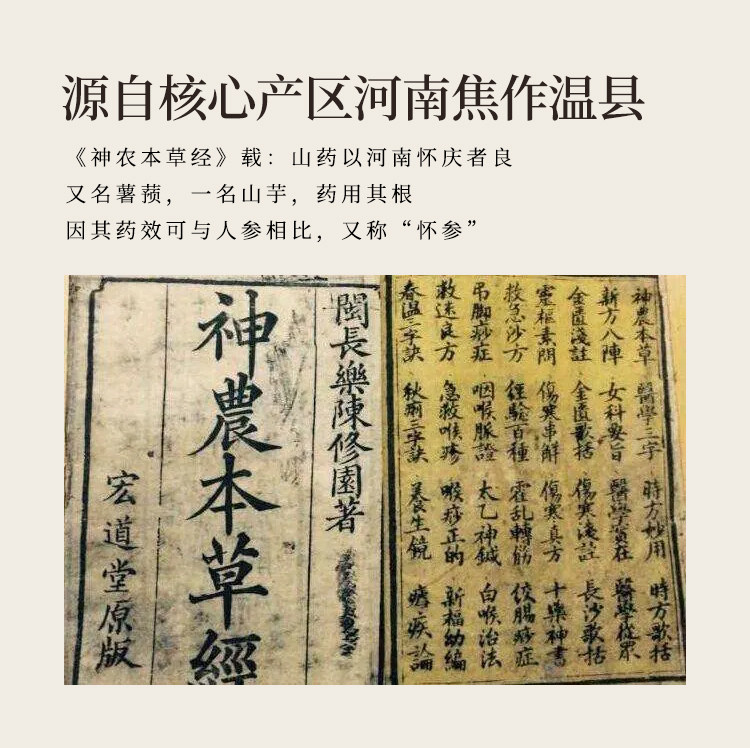 源自核心产区河南焦作温县
《神农本草经》载：山药以河南怀庆者良
又名薯蓣，一名山芋，药用其根
因其药效可与人参相比，又称“怀参”
神農本草 醫學三字 時方妙用 時方歌括
新方八陣 女科要旨 醫學實在 醫學從眾
金匱淺註 金匱歌括 傷寒淺註 長沙歌括
靈樞素問 傷寒串解 傷寒真方 十藥神書
救急沙方 經驗百種 霍乱轉筋 絞腸痧症
吊脚痧症 咽喉脈證 太乙神鍼 白喉治法
救迷良方 急救喉疹 喉痧正的 新福幼編
春温三字訣 三字訣 養生鏡 瘧疾論
閩長樂陳修園著
神農本草經
宏道堂原版